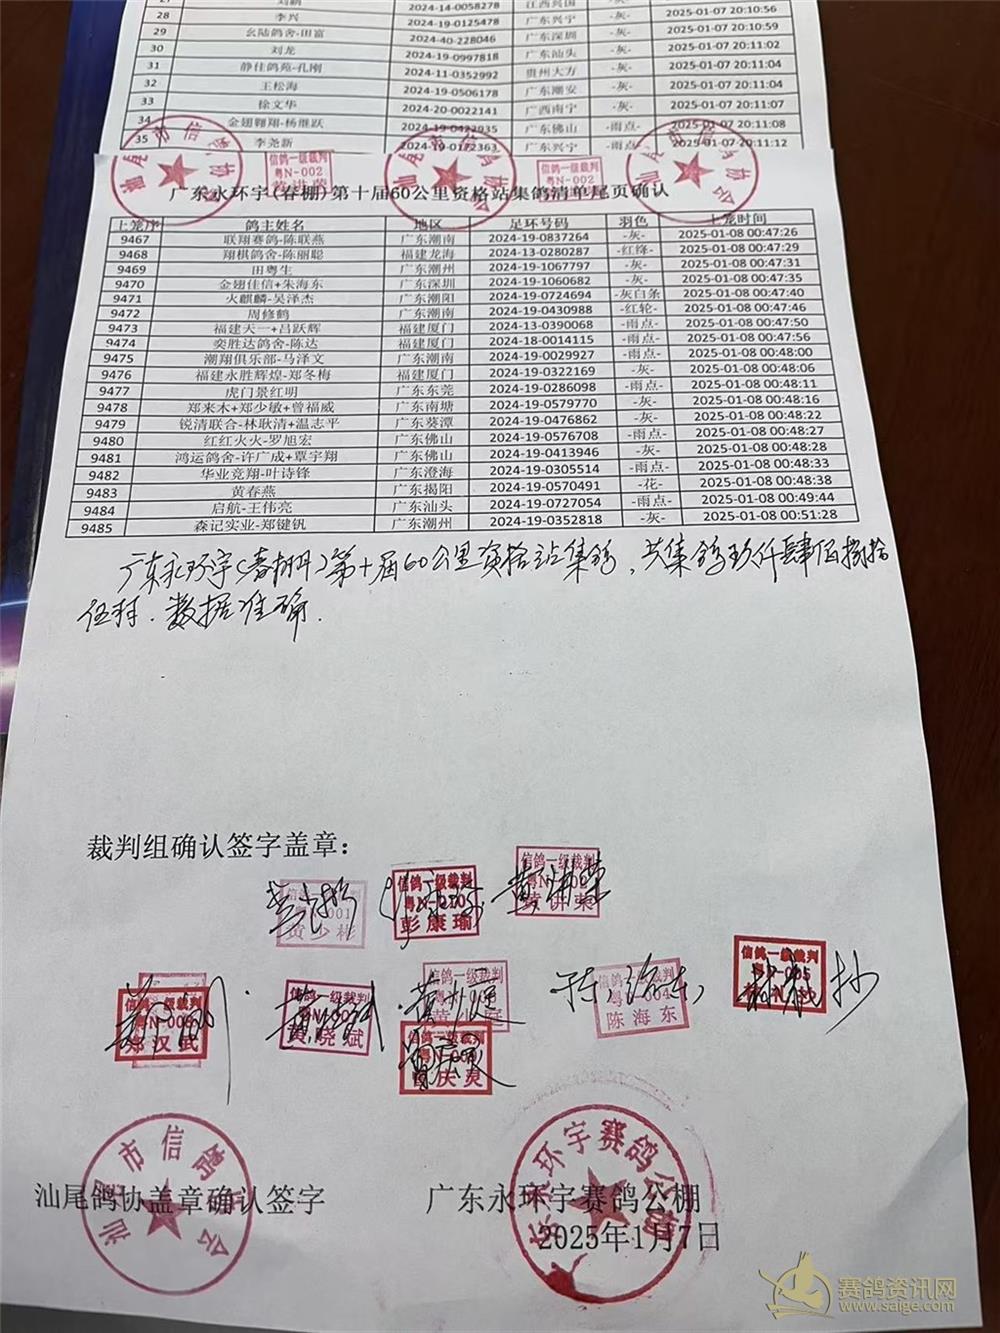 28 李兴 2024-19-0125478 广东兴宁 -灰- 2025-01-07 20:10:56
29 幺陆鸽舍-田富 2024-40-228046 广东深圳 -灰- 2025-01-07 20:10:59
30 刘龙 2024-19-0997818 广东汕头 -灰- 2025-01-07 20:11:02
31 静佳鸽苑-孔刚 2024-11-0352992 贵州大方 -灰- 2025-01-07 20:11:04
32 王松海 2024-19-0506178 广东潮安 -灰- 2025-01-07 20:11:04
33 徐文华 2024-20-0022141 广西南宁 -灰- 2025-01-07 20:11:07
34 金翅翱翔-杨继跃 广东佛山 -雨点- 2025-01-07 20:11:08
35 李尧新 2024-19-0172363 广东兴宁 -雨点- 2025-01-07 20:11:12
汕尾市信鸽协会
信鸽一级裁判
粤N-002
黄洪荣
汕尾市信鸽协会
信鸽一级裁判
粤N-002
汕尾市信鸽协会
广东永环宇(春棚)第十届60公里资格站集鸽清单尾页确认
上笼序 鸽主姓名 地区 足环号码 羽色 上笼时间
9467 联翔赛鸽-陈联燕 广东潮南 2024-19-0837264 -灰- 2025-01-08 00:47:26
9468 翔棋鸽舍-陈丽聪 福建龙海 2024-13-0280287 -红绛- 2025-01-08 00:47:29
9469 田粤生 广东潮州 2024-19-1067797 -灰- 2025-01-08 00:47:31
9470 金翅佳信+朱海东 广东深圳 2024-19-1060682 -灰- 2025-01-08 00:47:35
9471 火麒麟-吴泽杰 广东潮阳 2024-19-0724694 -灰白条 2025-01-08 00:47:40
9472 周修鹤 广东潮南 2024-19-0430988 -红轮- 2025-01-08 00:47:46
9473 福建天一+吕跃辉 福建厦门 2024-13-0390068 -雨点- 2025-01-08 00:47:50
9474 奕胜达鸽舍-陈达 福建厦门 2024-18-0014115 -雨点- 2025-01-08 00:47:56
9475 潮翔俱乐部-马泽文 广东潮南 2024-19-0029927 -雨点- 2025-01-08 00:48:00
9476 福建永胜辉煌-郑冬梅 福建厦门 2024-19-0322169 -灰- 2025-01-08 00:48:06
9477 虎门景红明 广东东莞 2024-19-0286098 -雨点- 2025-01-08 00:48:11
9478 郑来木+郑少敏+曾福威 广东南塘 2024-19-0579770 -灰- 2025-01-08 00:48:16
9479 锐清联合-林耿清+温志平 广东葵潭 2024-19-0476862 -灰- 2025-01-08 00:48:22
9480 红红火火-罗旭宏 广东佛山 2024-19-0576708 -雨点- 2025-01-08 00:48:27
9481 鸿运鸽舍-许广成+覃宇翔 广东佛山 2024-19-0413946 -灰- 2025-01-08 00:48:28
9482 华业竞翔-叶诗锋 广东澄海 2024-19-0305514 -雨点- 2025-01-08 00:48:33
9483 黄春燕 广东揭阳 2024-19-0570491 -花- 2025-01-08 00:48:38
9484 启航-王伟亮 广东汕头 2024-19-0727054 -雨点- 2025-01-08 00:49:44
9485 森记实业-郑键钒 广东潮州 2024-19-0352818 -灰- 2025-01-08 00:51:28
广东永环宇(春棚)第十届60公里资格站集鸽,共集鸽玖仟肆佰捌拾
伍羽.数据准确.
裁判组确认签字盖章:
信鸽一级裁判
黄少彬
信鸽一级裁判
彭康瑜
信鸽一级裁判
黄洪荣
信鸽一级裁判
郑汉武
信鸽一级裁判
黄晓斌
信鸽一级裁判
信鸽一级裁判
陈海东
信鸽一级裁判
信鸽一级裁判
曾庆灵
汕尾市信鸽协会
汕尾鸽协盖章确认签字
广东永环宇赛鸽公棚
2025年1月7日
赛鸽资讯网
www.saige.com